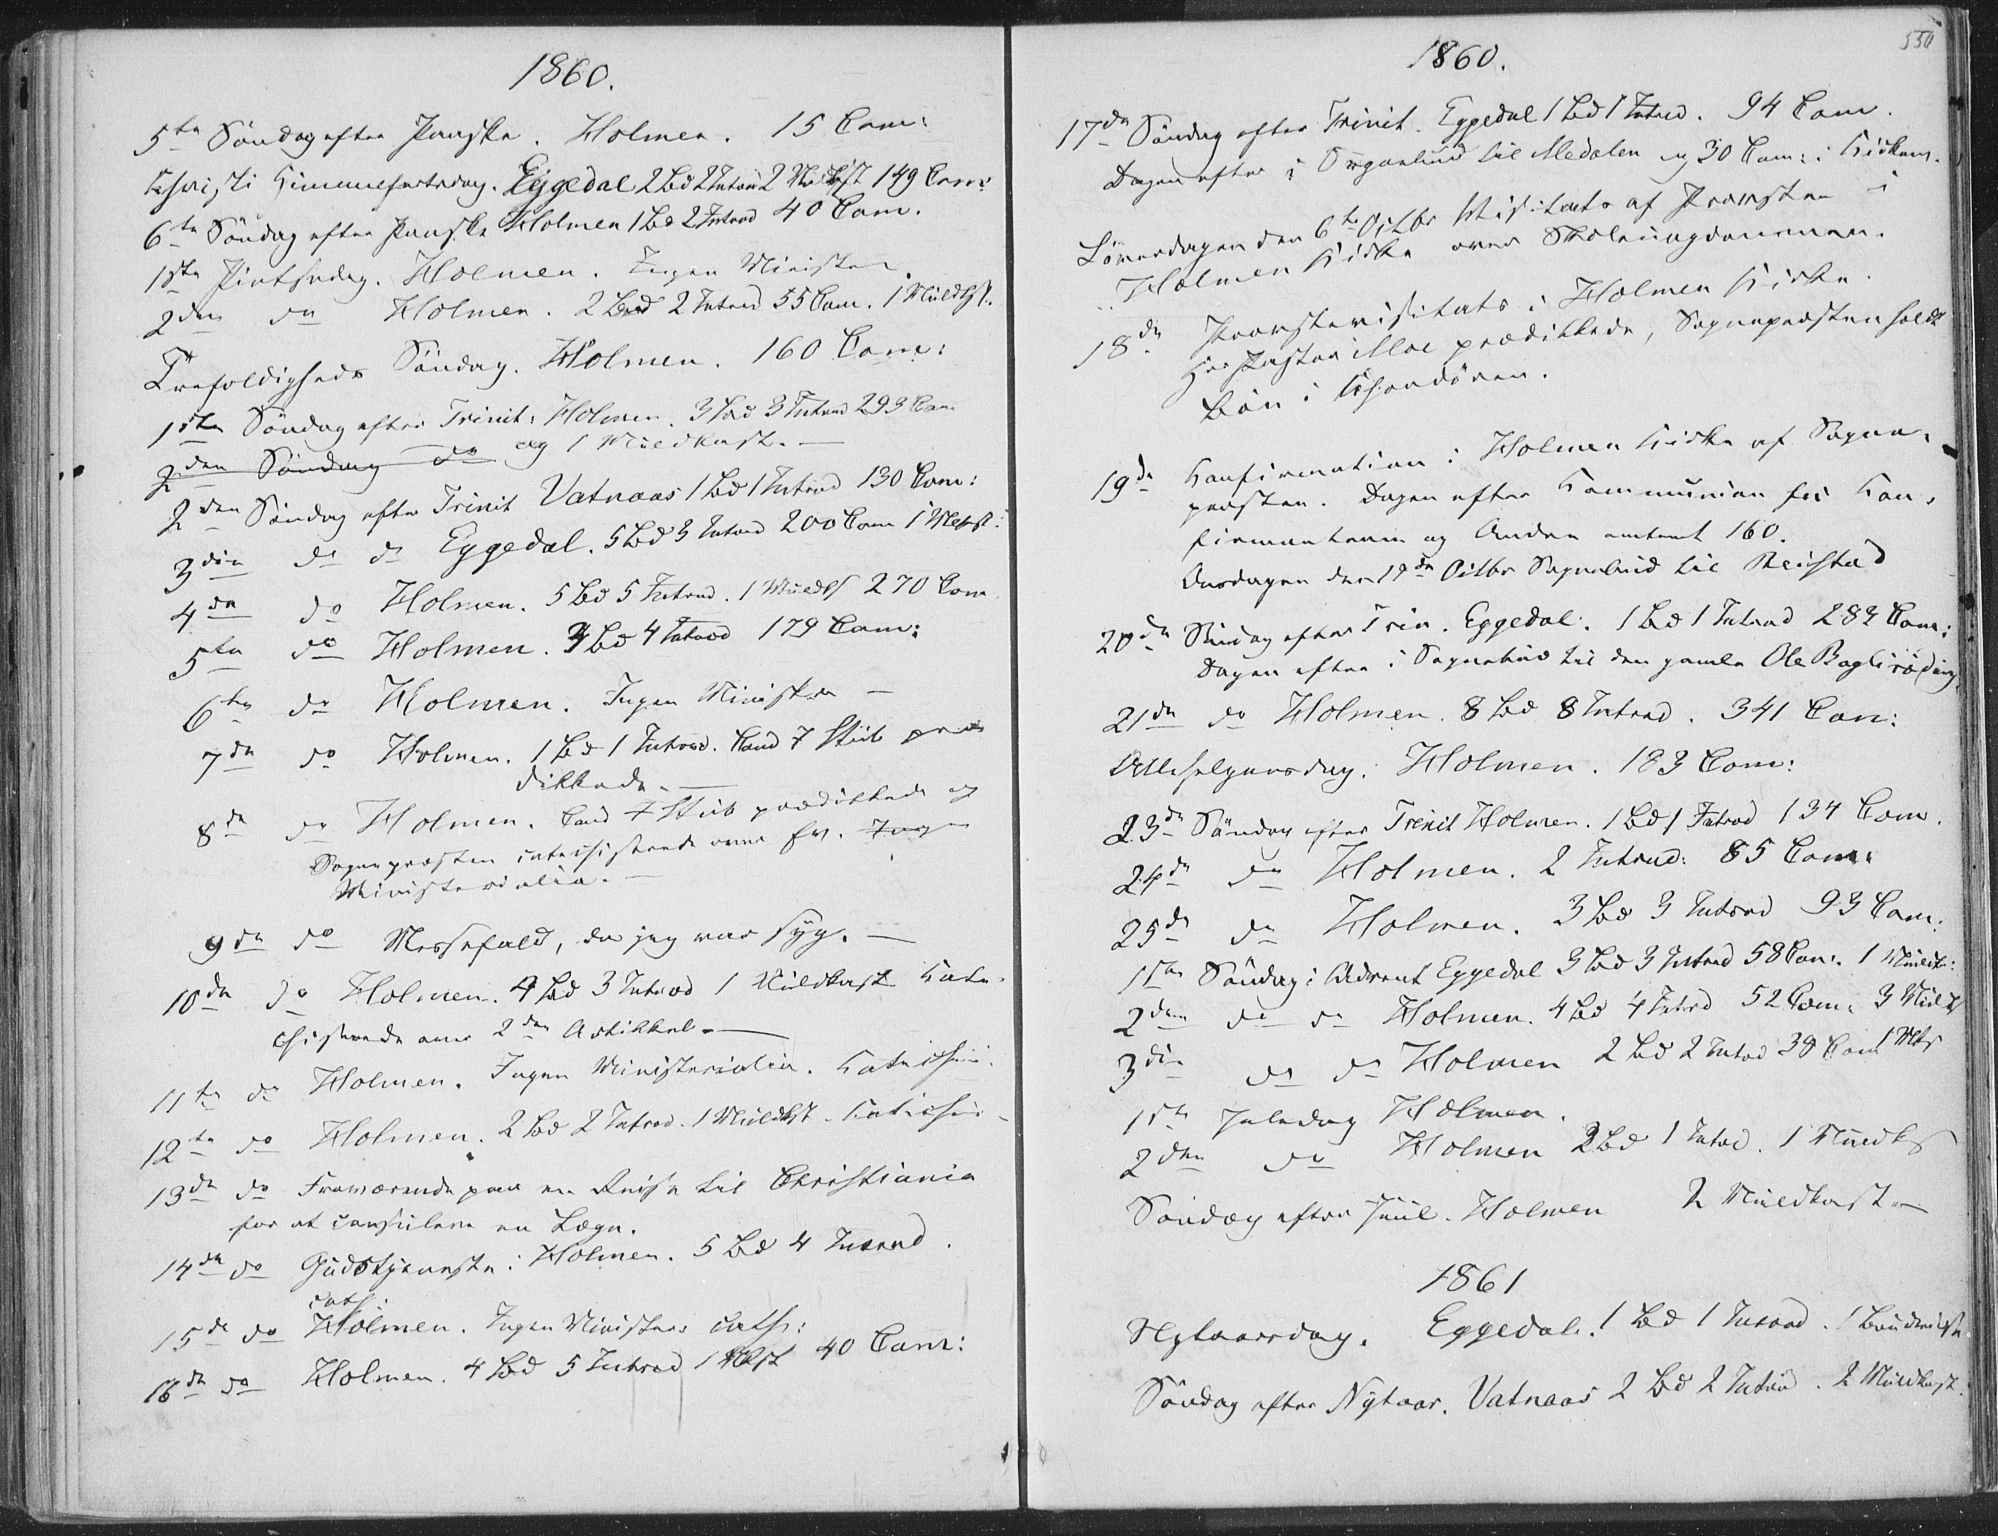 1860.
5te Söndag efter Paaske. Holmen. 15 Com:
Christi Himmelfartsdag. Eggedal 2 Bd 2 Introd 2 Muldkst 149 Com:
6te Söndag efter Paaske Holmen 1 Bd 2 Introd 40 Com.
1ste Pintsedag. Holmen. Ingen Minister.
2den do Holmen. 2 Bd 2 Introd 55 Com. 1 Muldkst.
Trefoldigheds Söndag. Holmen. 160 Com:
1ste Söndag efter Trinit: Holmen. 3 Bd 3 Introd 293 Com
2den Söndag do og 1 Muldkast.
2den Söndag efter Trinit Vatnaas 1 Bd 1 Introd 130 Com:
3die do do Eggedal. 5 Bd 3 Introd 200 Com 1 Mkst:
4de do Holmen. 5 Bd 5 Introd. 1 Muldk 270 Com
5te do Holmen. 4 Bd 4 Introd 179 Com:
6te do Holmen. Ingen Minister
7de do Holmen. 1 Bd 1 Introd. Cand Stub præ
dikkede.
8de do Holmen. Cand Stub prædikkede og
Sognepræsten catechiserede over Ev. Ingen
Ministerialia.
9de do Messefald, da jeg var syg.
10de do Holmen. 4 Bd 3 Introd 1 Muldkast Cate-
chiserede over 2den Artikkel.
11te do Holmen. Ingen Ministerialia. Catechis:
12te do Holmen. 2 Bd 2 Introd. 1 Muldkst. Catechis
13de do Fraværende paa en Reise til Christiania
for at consulere en Læge.
14de do Gudstjeneste i Holmen. 5 Bd 4 Introd.
cath:
15de do Holmen. Ingen Minister cath:
16de do Holmen. 4 Bd 5 Introd 1 Mkst 40 Com:
550
1860.
17de Söndag efter Trinit. Eggedal 1 Bd 1 Introd. 94 Com.
Dagen efter i Sognebud til Medalen og 30 Com: i Kirken.
Löverdagen den 6te Octbr Visitats af Provsten i
Holmen Kirke over Skoleungdommen.
18de Provstevisitats i Holmen Kirke.
Hr Pastor Moe prædikkede, Sognepræsten holdt
Bön i Chordören.
19de Confirmation i Holmen Kirke af Sogne-
præsten. Dagen efter Kommunion for Con-
firmanterne og Andre omtrent 160.
Onsdagen den 17de Octbr Sognebud til Reistad
20de Söndag efter Trin. Eggedal. 1 Bd 1 Introd 282 Com:
Dagen efter i Sognebud til den gamle Ole
21de do Holmen. 8 Bd 8 Introd. 341 Com:
Allehelgensdag. Holmen. 183 Com:
23de Söndag efter Trinit Holmen. 1 Bd 1 Introd 134 Com.
24de do Holmen. 2 Introd: 85 Com:
25de do Holmen. 3 Bd 3 Introd 93 Com:
1ste Söndag i Advent Eggedal 3 Bd 3 Introd 58 Com. 1 Muldk:
2den do do Holmen. 4 Bd 4 Introd 52 Com: 3 Muldk
3die do do Holmen 2 Bd 2 Introd 38 Com 1 Mks
1ste Juledag Holmen.
2den do Holmen 2 Bd 1 Introd. 1 Muldks
Söndag efter Juul. Holmen 2 Muldkast
1861
Nytaarsdag. Eggedal. 1 Bd 1 Introd. 1
Söndag efter Nytaar. Vatnaas 2 Bd 2 Introd. 2 Muldkast.